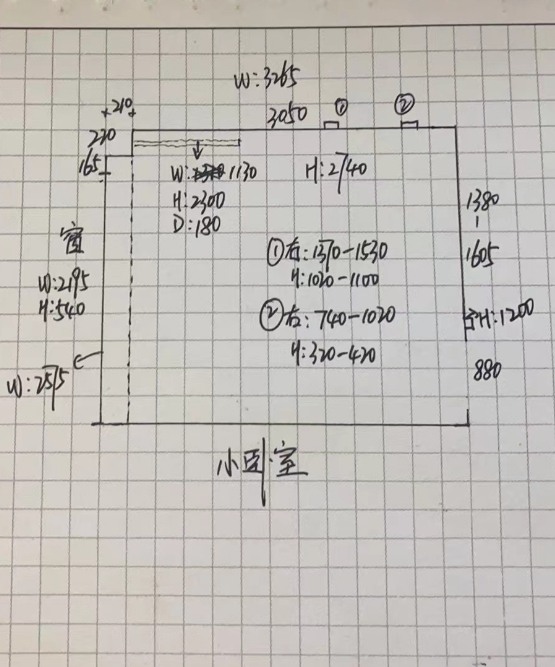 W:3265
210
3050
①
②
220
165
W:1130
H:2300
D:180
H:2740
1380
|
1605
窗
W:2195
H:540
①右:1370-1530
H:1020-1100
②右:740-1020
H:320-420
H:1200
880
W:2575
小卧室